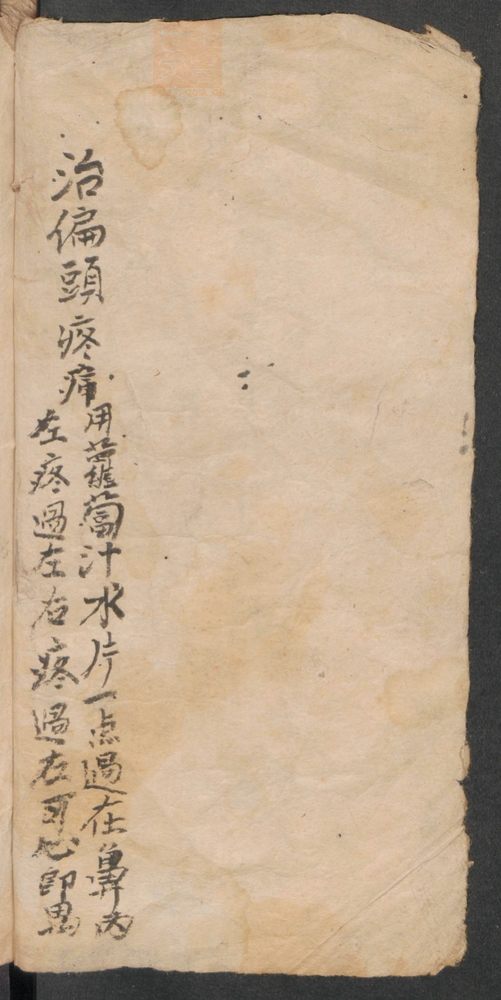 治偏頭疼痛
用蘿蔔汁水片一点過在鼻内
左疼過左右疼過右可心即